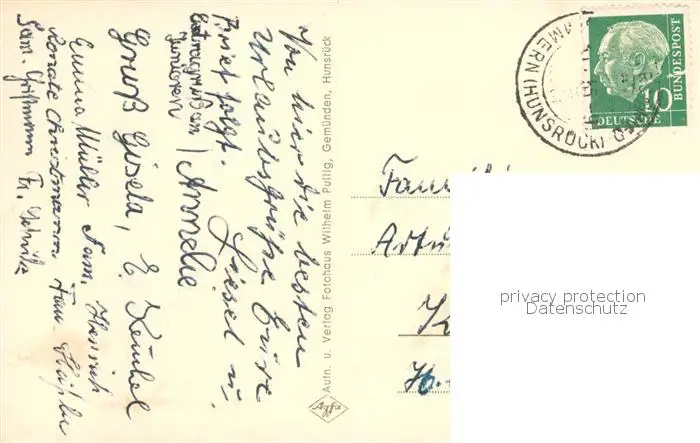 Von hier die besten
Urlaubsgrüße Eure
Brief folgt. Liesel u.
Extragruß an
Junioren
Annelie
Gruß Gisela, E. Keubel
Emma Müller Fam. Henrich
Renate Christmann Fam.
Fam. Christmann Fr. Schütz
Aufn. u. Verlag Fotohaus Wilhelm Pullig, Gemünden, Hunsrück
Agfa
(HUNSRÜCK)
10
DEUTSCHE
BUNDESPOST
Fam
Artu
K
privacy protection
Datenschutz